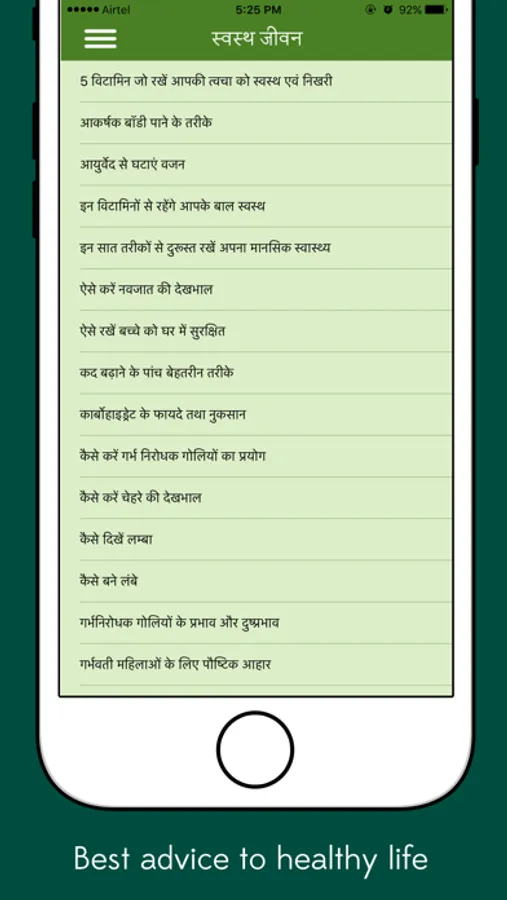 Airtel 5:25 PM 92%
स्वस्थ जीवन
5 विटामिन जो रखें आपकी त्वचा को स्वस्थ एवं निखरी
आकर्षक बॉडी पाने के तरीके
आयुर्वेद से घटाएं वजन
इन विटामिनों से रहेंगे आपके बाल स्वस्थ
इन सात तरीकों से दुरूस्त रखें अपना मानसिक स्वास्थ्य
ऐसे करें नवजात की देखभाल
ऐसे रखें बच्चे को घर में सुरक्षित
कद बढ़ाने के पांच बेहतरीन तरीके
कार्बोहाइड्रेट के फायदे तथा नुकसान
कैसे करें गर्भ निरोधक गोलियों का प्रयोग
कैसे करें चेहरे की देखभाल
कैसे दिखें लम्बा
कैसे बने लंबे
गर्भनिरोधक गोलियों के प्रभाव और दुष्प्रभाव
गर्भवती महिलाओं के लिए पौष्टिक आहार
Best advice to healthy life